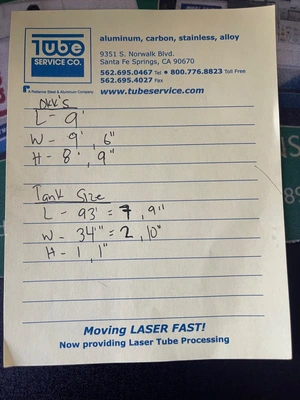 Tube
SERVICE CO.
A Reliance Steel & Aluminum Company
aluminum, carbon, stainless, alloy
9351 S. Norwalk Blvd.
Santa Fe Springs, CA 90670
562.695.0467 Tel • 800.776.8823 Toll Free
562.695.4027 Fax
www.tubeservice.com
L - 9'
W - 9', 6"
H - 8', 9"
Tank Size
L - 93' = 7, 9"
W - 34'" = 2, 10"
H - 1, 1"
Moving LASER FAST!
Now providing Laser Tube Processing